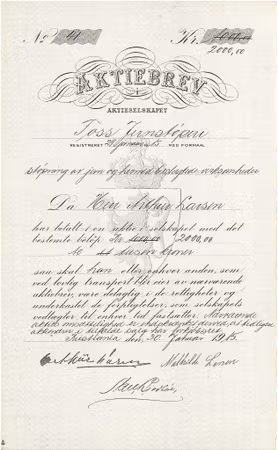 No 4 Kr. 1000,00
2000,00
AKTIEBREV
i
AKTIESELSKAPET
Toss Jernstøperi
REGISTRERET 29 januar 1915 MED FORMAAL
støpning av jern og hermed beslegtede virksomheter
Da Herr Arthur Larsen
har betalt i en aktie i selskapet med det
bestemte beløp Kr. 2000,00
to tusen kroner
saa skal han eller enhver anden, som
ved lovlig transport blir eier av nærværende
aktiebrev, være delagtig i de rettigheter og
underkastet de forpligtelser, som selskapets
vedtægter til enhver tid fastsætter. Nærværende
Kristiania den 30 januar 1915.
Mathilde Larsen